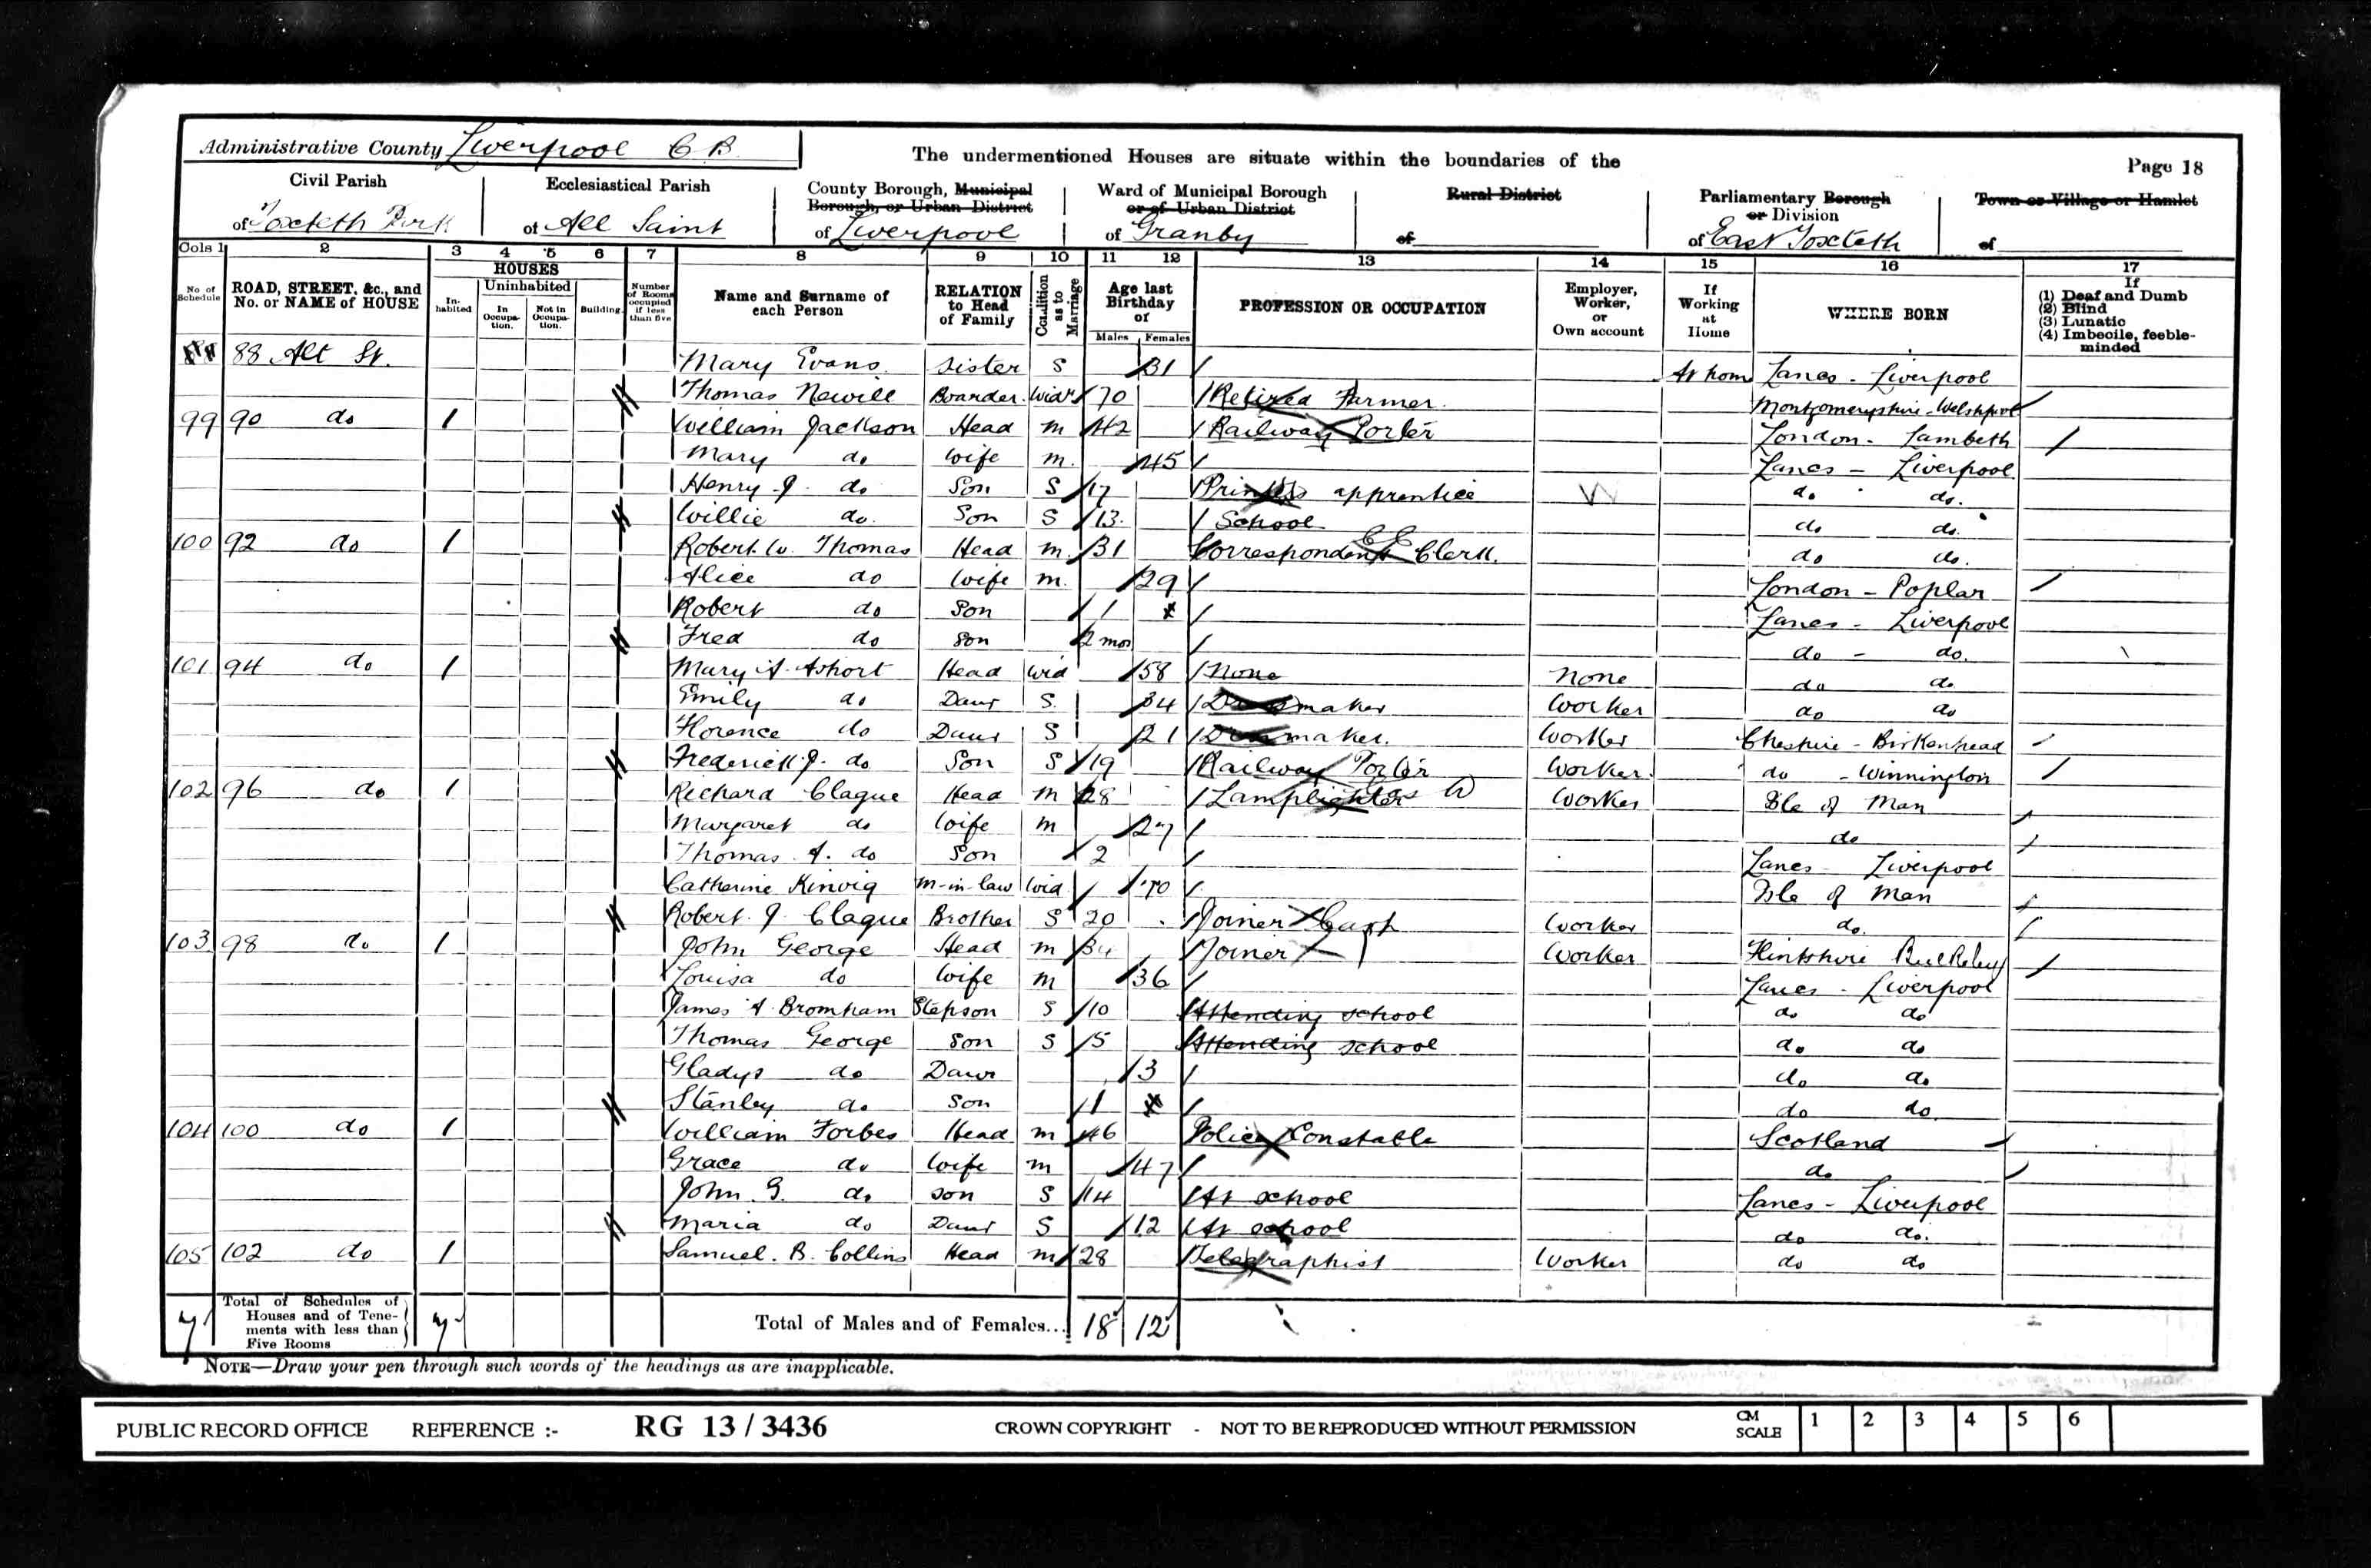 Administrative County Liverpool C B
The undermentioned Houses are situate within the boundaries of the
Page 18
Civil Parish of Toxteth Park
Ecclesiastical Parish of All Saint
County Borough, Municipal Borough, or Urban District of Liverpool
Ward of Municipal Borough or of Urban District of Granby
Rural District of
Parliamentary Borough or Division of East Toxteth
Town or Village or Hamlet of
Cols 1 2 3 4 5 6 7 8 9 10 11 12 13 14 15 16 17
No of Schedule
ROAD, STREET, &c., and No. or NAME of HOUSE
HOUSES
In-habited
Uninhabited
In Occupa-tion.
Not in Occupa-tion.
Building
Number of Rooms occupied if less than five
Name and Surname of each Person
RELATION to Head of Family
Condition as to Marriage
Age last Birthday of
Males Females
PROFESSION OR OCCUPATION
Employer, Worker, or Own account
If Working at Home
WHERE BORN
If
(1) Deaf and Dumb
(2) Blind
(3) Lunatic
(4) Imbecile, feeble-minded
88 Alt St. Mary Evans Sister S 31 At hom Lancs - Liverpool
Thomas Newill Boarder Widr 70 Retired Farmer Montgomeryshire - Welshpool
99 90 do 1 William Jackson Head m 42 Railway Porter London - Lambeth
Mary do Wife m. 45 Lancs - Liverpool
Henry J. do Son S 17 apprentice W do do.
Willie do. Son S 13. School do do.
100 92 do 1 Robert W. Thomas Head m. 31 Correspondent Clerk. do do.
Alice do Wife m. 29 London - Poplar
Robert do Son 1 Lancs - Liverpool
Fred do Son 2 mos do - do.
101 94 do 1 Mary A. Ashort Head Wid 58 None None do do
Emily do Daur S. 34 Dressmaker Worker do do
Florence do Daur S 21 Dressmaker. Worker Cheshire - Birkenhead
Frederick J. do Son S 19 Railway Porter Worker. do - Winnington
102 96 do 1 Richard Clague Head m 28 Lamplighter Worker Isle of Man
Margaret do Wife m 27 do
Thomas A. do Son 2 Lancs - Liverpool
Catherine Kinvig m-in-law Wid 70 Isle of Man
Robert J. Clague Brother S 20 Joiner Worker do.
103 98 do 1 John George Head m 34 Joiner Worker Flintshire
Louisa do Wife m 36 Lancs - Liverpool
James A. Bromham Stepson S 10 Attending school do do
Thomas George Son S 5 Attending school do do
Gladys do Daur 3 do do
Stanley do Son 1 do do.
104 100 do 1 William Forbes Head m 46 Police Constable Scotland
Grace do Wife m 47 do
John. G. do son S 14 At school Lancs - Liverpool
Maria do Daur S 12 At school do do.
105 102 do 1 Samuel. B. Collins Head m 28 Telegraphist Worker do do
7 Total of Schedules of Houses and of Tene-ments with less than Five Rooms 7 Total of Males and of Females... 18 12
NOTE—Draw your pen through such words of the headings as are inapplicable.
PUBLIC RECORD OFFICE REFERENCE :- RG 13 / 3436 CROWN COPYRIGHT - NOT TO BE REPRODUCED WITHOUT PERMISSION CM SCALE 1 2 3 4 5 6